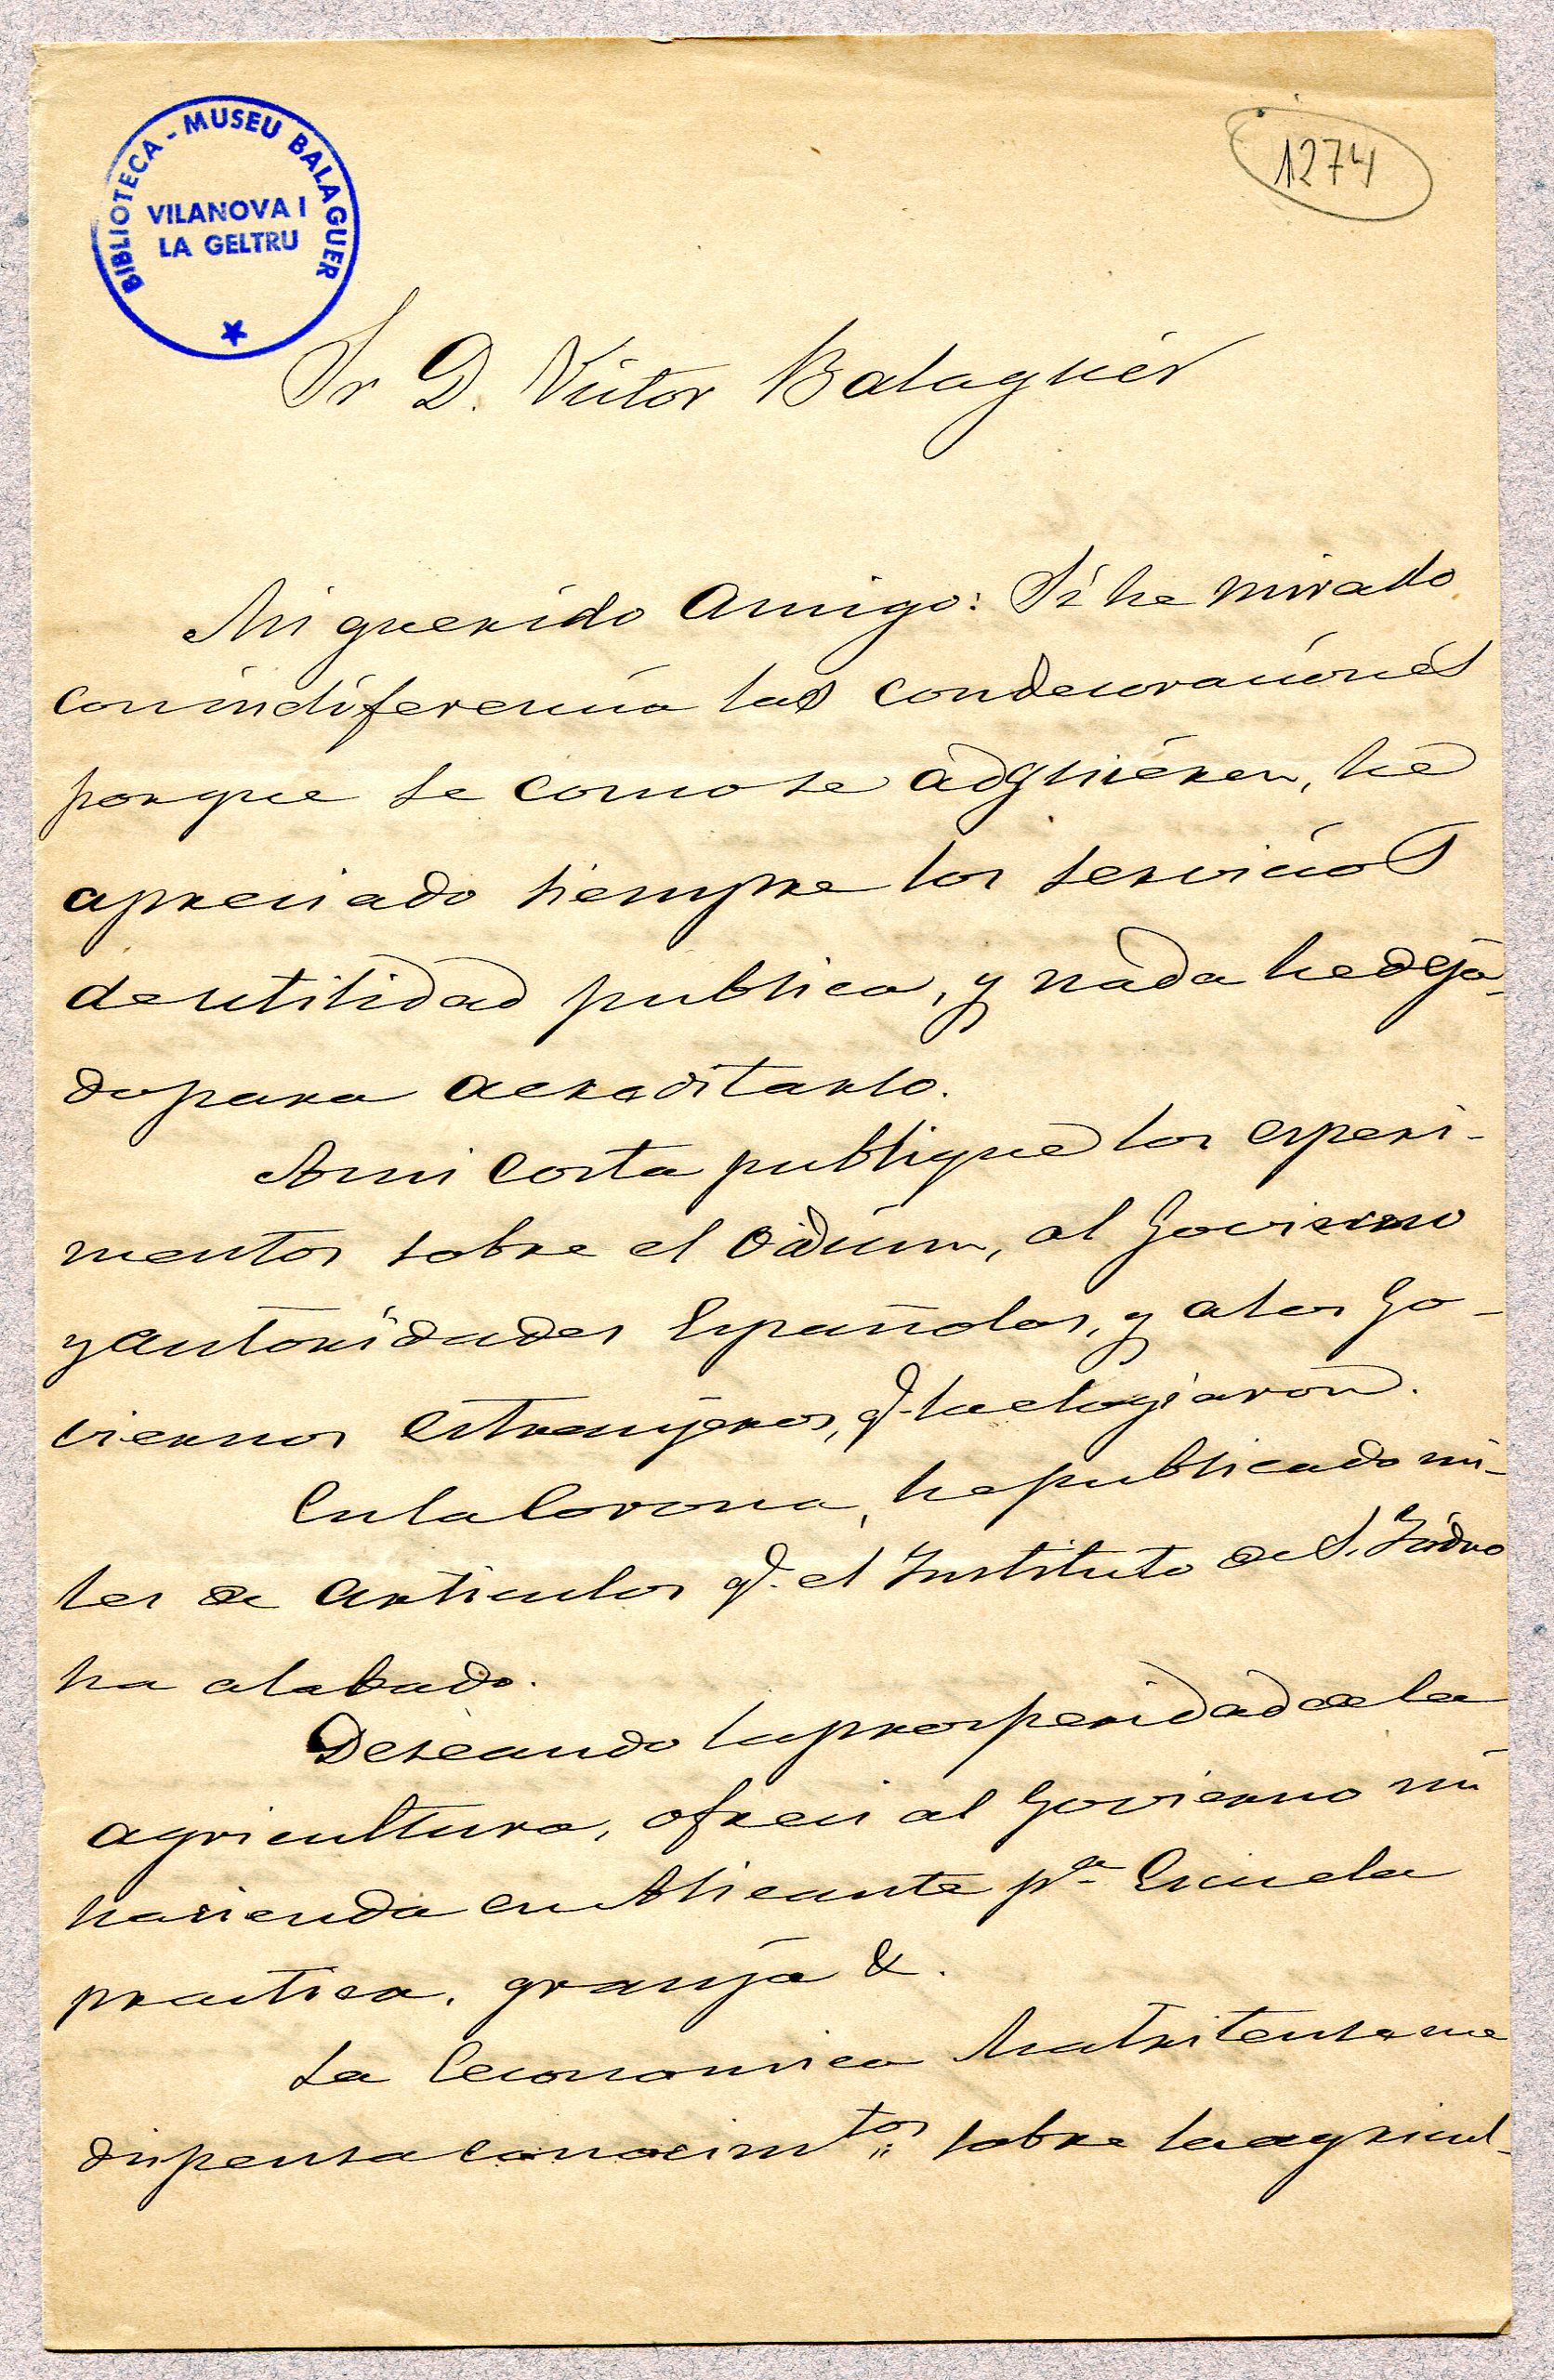 BIBLIOTECA - MUSEU BALAGUER
VILANOVA I
LA GELTRU
1274
Sr D. Victor Balaguer
Mi querido Amigo: Si he mirado
con indiferencia las condecoraciones
porque se como se adquieren, he
apreciado siempre los servicios
de utilidad publica, y nada he deja-
do para acreditarlo.
A mi costa publiqué los esperi-
mentos sobre el Oidium, al Govierno
y autoridades Españolas, y a los Go-
viernos estranjeros, q. la elogiaron.
En la Corona, he publicado mi-
les de articulos q. el Instituto de S. Isidro
ha alabado.
Deseando la prosperidad de la
agricultura, ofreci al Govierno mi
hacienda en Alicante pª Escuela
practica, granja &.
La Economica Matritense me
dispensa conocimtos sobre la agricul-